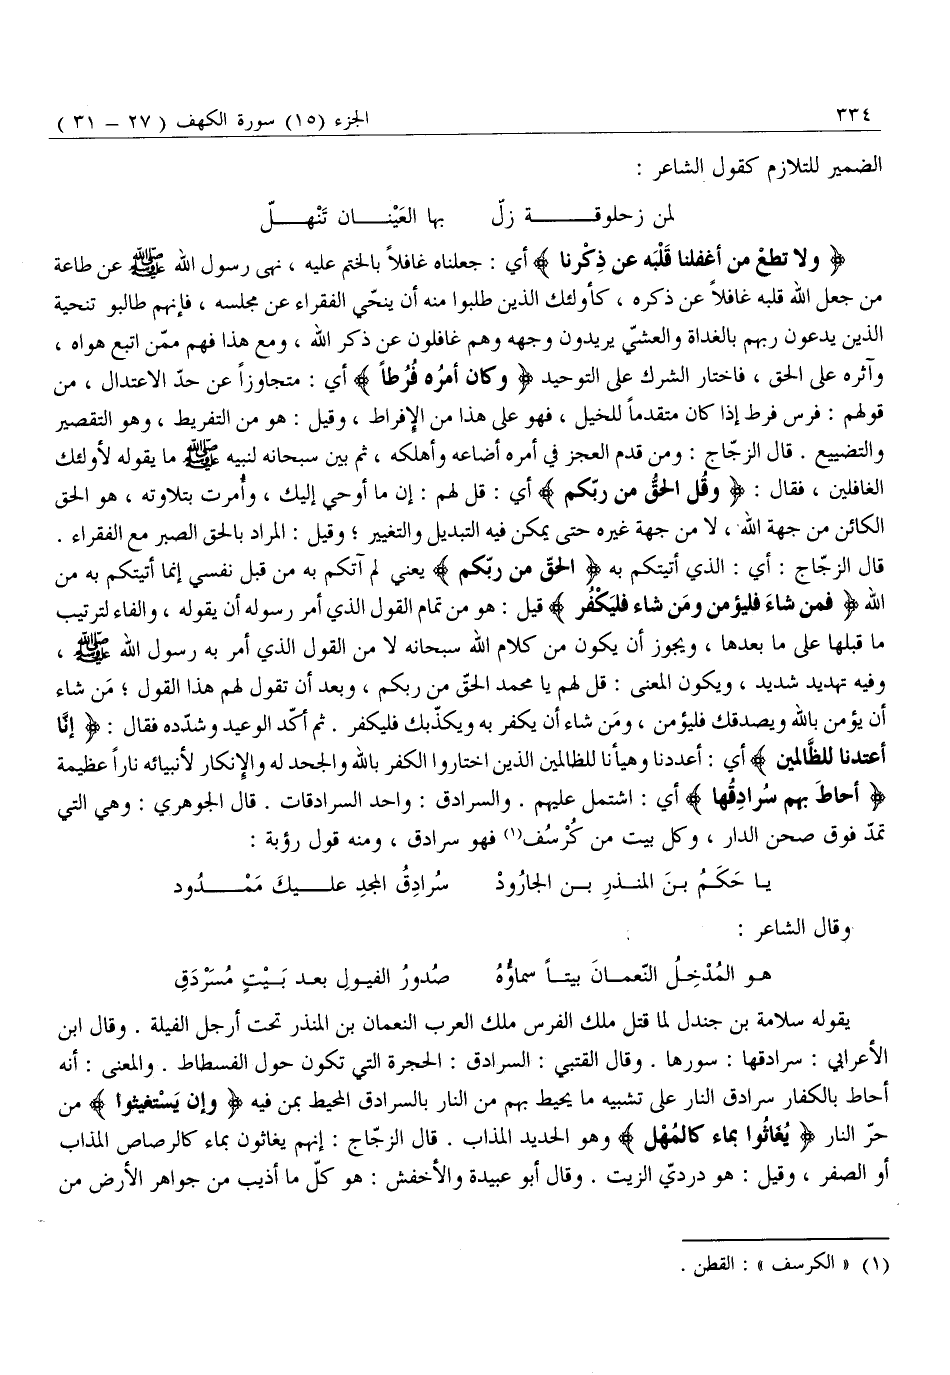 ٣٣٤ الجزء (١٥) سورة الكهف ( ٢٧ – ٣١ )
الضمير للتلازم كقول الشاعر :
لمن زحلوقــة زلّ بها العَيْنــان تَنْهــلّ
﴿ ولا تطعْ من أغفلنا قَلْبَه عن ذِكْرنا ﴾ أي : جعلناه غافلاً بالختم عليه ، نهى رسول الله ﷺ عن طاعة
من جعل الله قلبه غافلاً عن ذكره ، كأولئك الذين طلبوا منه أن ينحّي الفقراء عن مجلسه ، فإنهم طالبو تنحية
الذين يدعون ربهم بالغداة والعشيّ يريدون وجهه وهم غافلون عن ذكر الله ، ومع هذا فهم ممّن اتبع هواه ،
وآثره على الحق ، فاختار الشرك على التوحيد ﴿ وكان أمرُه فُرُطاً ﴾ أي : متجاوزاً عن حدّ الاعتدال ، من
قولهم : فرس فرط إذا كان متقدماً للخيل ، فهو على هذا من الإفراط ، وقيل : هو من التفريط ، وهو التقصير
والتضييع . قال الزجّاج : ومن قدم العجز في أمره أضاعه وأهلكه ، ثم بين سبحانه لنبيه ﷺ ما يقوله لأولئك
الغافلين ، فقال : ﴿ وقُل الحقُّ من ربّكم ﴾ أي : قل لهم : إن ما أوحي إليك ، وأُمرت بتلاوته ، هو الحق
الكائن من جهة الله ، لا من جهة غيره حتى يمكن فيه التبديل والتغيير ؛ وقيل : المراد بالحق الصبر مع الفقراء .
قال الزجّاج : أي : الذي أتيتكم به ﴿ الحقّ من ربّكم ﴾ يعني لم آتكم به من قبل نفسي إنما أتيتكم به من
الله ﴿ فمن شاءَ فليؤمن ومَن شاء فليَكْفُر ﴾ قيل : هو من تمام القول الذي أمر رسوله أن يقوله ، والفاء لترتيب
ما قبلها على ما بعدها ، ويجوز أن يكون من كلام الله سبحانه لا من القول الذي أمر به رسول الله ﷺ ،
وفيه تهديد شديد ، ويكون المعنى : قل لهم يا محمد الحقّ من ربكم ، وبعد أن تقول لهم هذا القول ؛ مَن شاء
أن يؤمن بالله ويصدقك فليؤمن ، ومَن شاء أن يكفر به ويكذّبك فليكفر . ثم أكّد الوعيد وشدّده فقال : ﴿ إنَّا
أعتدنا للظَّالمين ﴾ أي : أعددنا وهيأنا للظالمين الذين اختاروا الكفر بالله والجحد له والإنكار لأنبيائه ناراً عظيمة
﴿ أحاطَ بهم سُرادِقُها ﴾ أي : اشتمل عليهم . والسرادق : واحد السرادقات . قال الجوهري : وهي التي
تمدّ فوق صحن الدار ، وكل بيت من كُرْسُف(١) فهو سرادق ، ومنه قول رؤبة :
يـا حَكَـمُ بـنَ المنــذرِ بــن الجارُودْ سُرادِقُ المجدِ عليــكَ مَمْــدُود
وقال الشاعر :
هـو المُدْخِـلُ النّعمـانَ بيتـاً سماؤُهُ صُدورُ الفيـولِ بعـد بَـيْتٍ مُسَرْدَقِ
يقوله سلامة بن جندل لما قتل ملك الفرس ملك العرب النعمان بن المنذر تحت أرجل الفيلة . وقال ابن
الأعرابي : سرادقها : سورها . وقال القتبي : السرادق : الحجرة التي تكون حول الفسطاط . والمعنى : أنه
أحاط بالكفار سرادق النار على تشبيه ما يحيط بهم من النار بالسرادق المحيط بمن فيه ﴿ وإن يَسْتغيثوا ﴾ من
حرّ النار ﴿ يُغَاثُوا بماء كالمُهْل ﴾ وهو الحديد المذاب . قال الزجّاج : إنهم يغاثون بماء كالرصاص المذاب
أو الصفر ، وقيل : هو درديّ الزيت . وقال أبو عبيدة والأخفش : هو كلّ ما أذيب من جواهر الأرض من
(١) « الكرسف » : القطن .